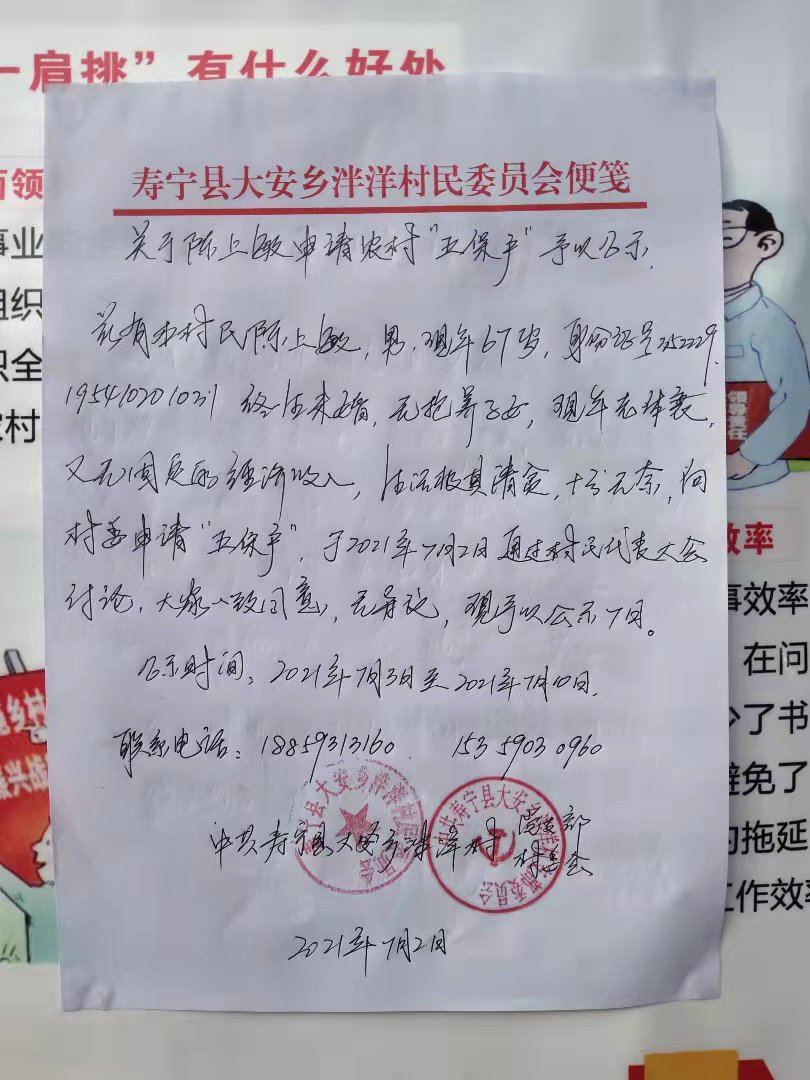 一肩挑”有什么好处
寿宁县大安乡泮洋村民委员会便笺
关于陈上敏申请农村“五保户”予以公示.
兹有本村民陈上敏, 男, 现年67岁, 身份证号352229
195410201031 终生未婚, 无抱养子女, 现年老体衰,
又无固定的经济收入, 生活极其清贫, 十分无奈, 向
村委申请“五保户”, 于2021年7月2日通过村民代表大会
讨论, 大家一致同意, 无异议, 现予以公示7日。
公示时间: 2021年7月3日至2021年7月10日.
联系电话: 18859313160 15359030960
中共寿宁县大安乡泮洋村 党支部
村委会
2021年7月2日
领
事业
组织
织全
农村
领导责任
效率
事效率
在问
少了书
避免了
的拖延
工作效率
乡村
振兴战